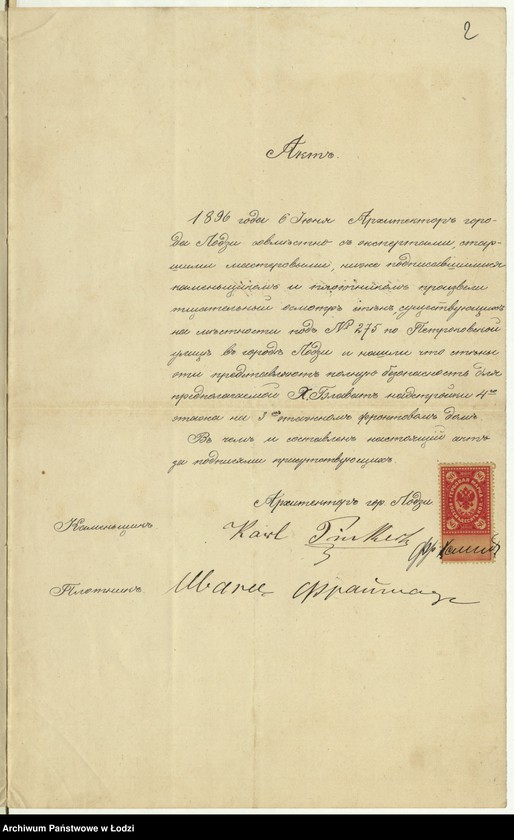 2
Актъ.
1896 года 6 Iюня Архитекторъ горо-
да Лодзи совмѣстно съ экспертами стар-
шими мастеровыми, ниже подписавшимися
каменьщикомъ и плотникомъ произвели
тщательный осмотръ стѣнъ, существующихъ
на мѣстности подъ № 275 по Петроковской
улицѣ въ городѣ Лодзи и нашли что стѣны
эти представляютъ полную безопасность для
предполагаемой надстройки 4го
этажа на 3хъ этажномъ фронтовомъ домѣ.
Въ чемъ и составленъ настоящій актъ
за подписями присутствующихъ.
Архитекторъ гор. Лодзи
Каменьщикъ Karl
Плотникъ Иванъ
Archiwum Państwowe w Łodzi